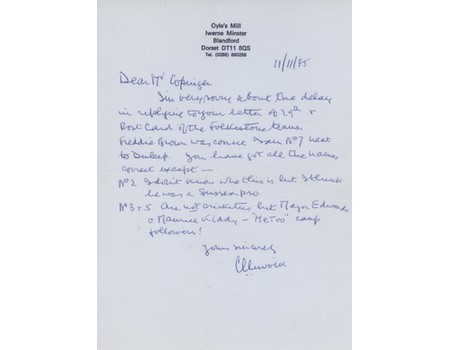 Oyle's Mill
Iwerne Minster
Blandford
Dorset DT11 8QS
Tel. (0258) 890258
11/11/85
Dear Mr Copinger
I'm very sorry about the delay
in replying to your letter of 29th &
Post Card of the Folkestone teams.
Freddie Brown was correct I am No 7 next
to Duleep. You have got all the names
correct except —
No 2 I don't know who this is but I think
he was a Sussex pro.
No 3 & 5 Are not cricketers but Major Edwards
& Maurice Kiddy - "Me Too" camp
followers!
Yours sincerely